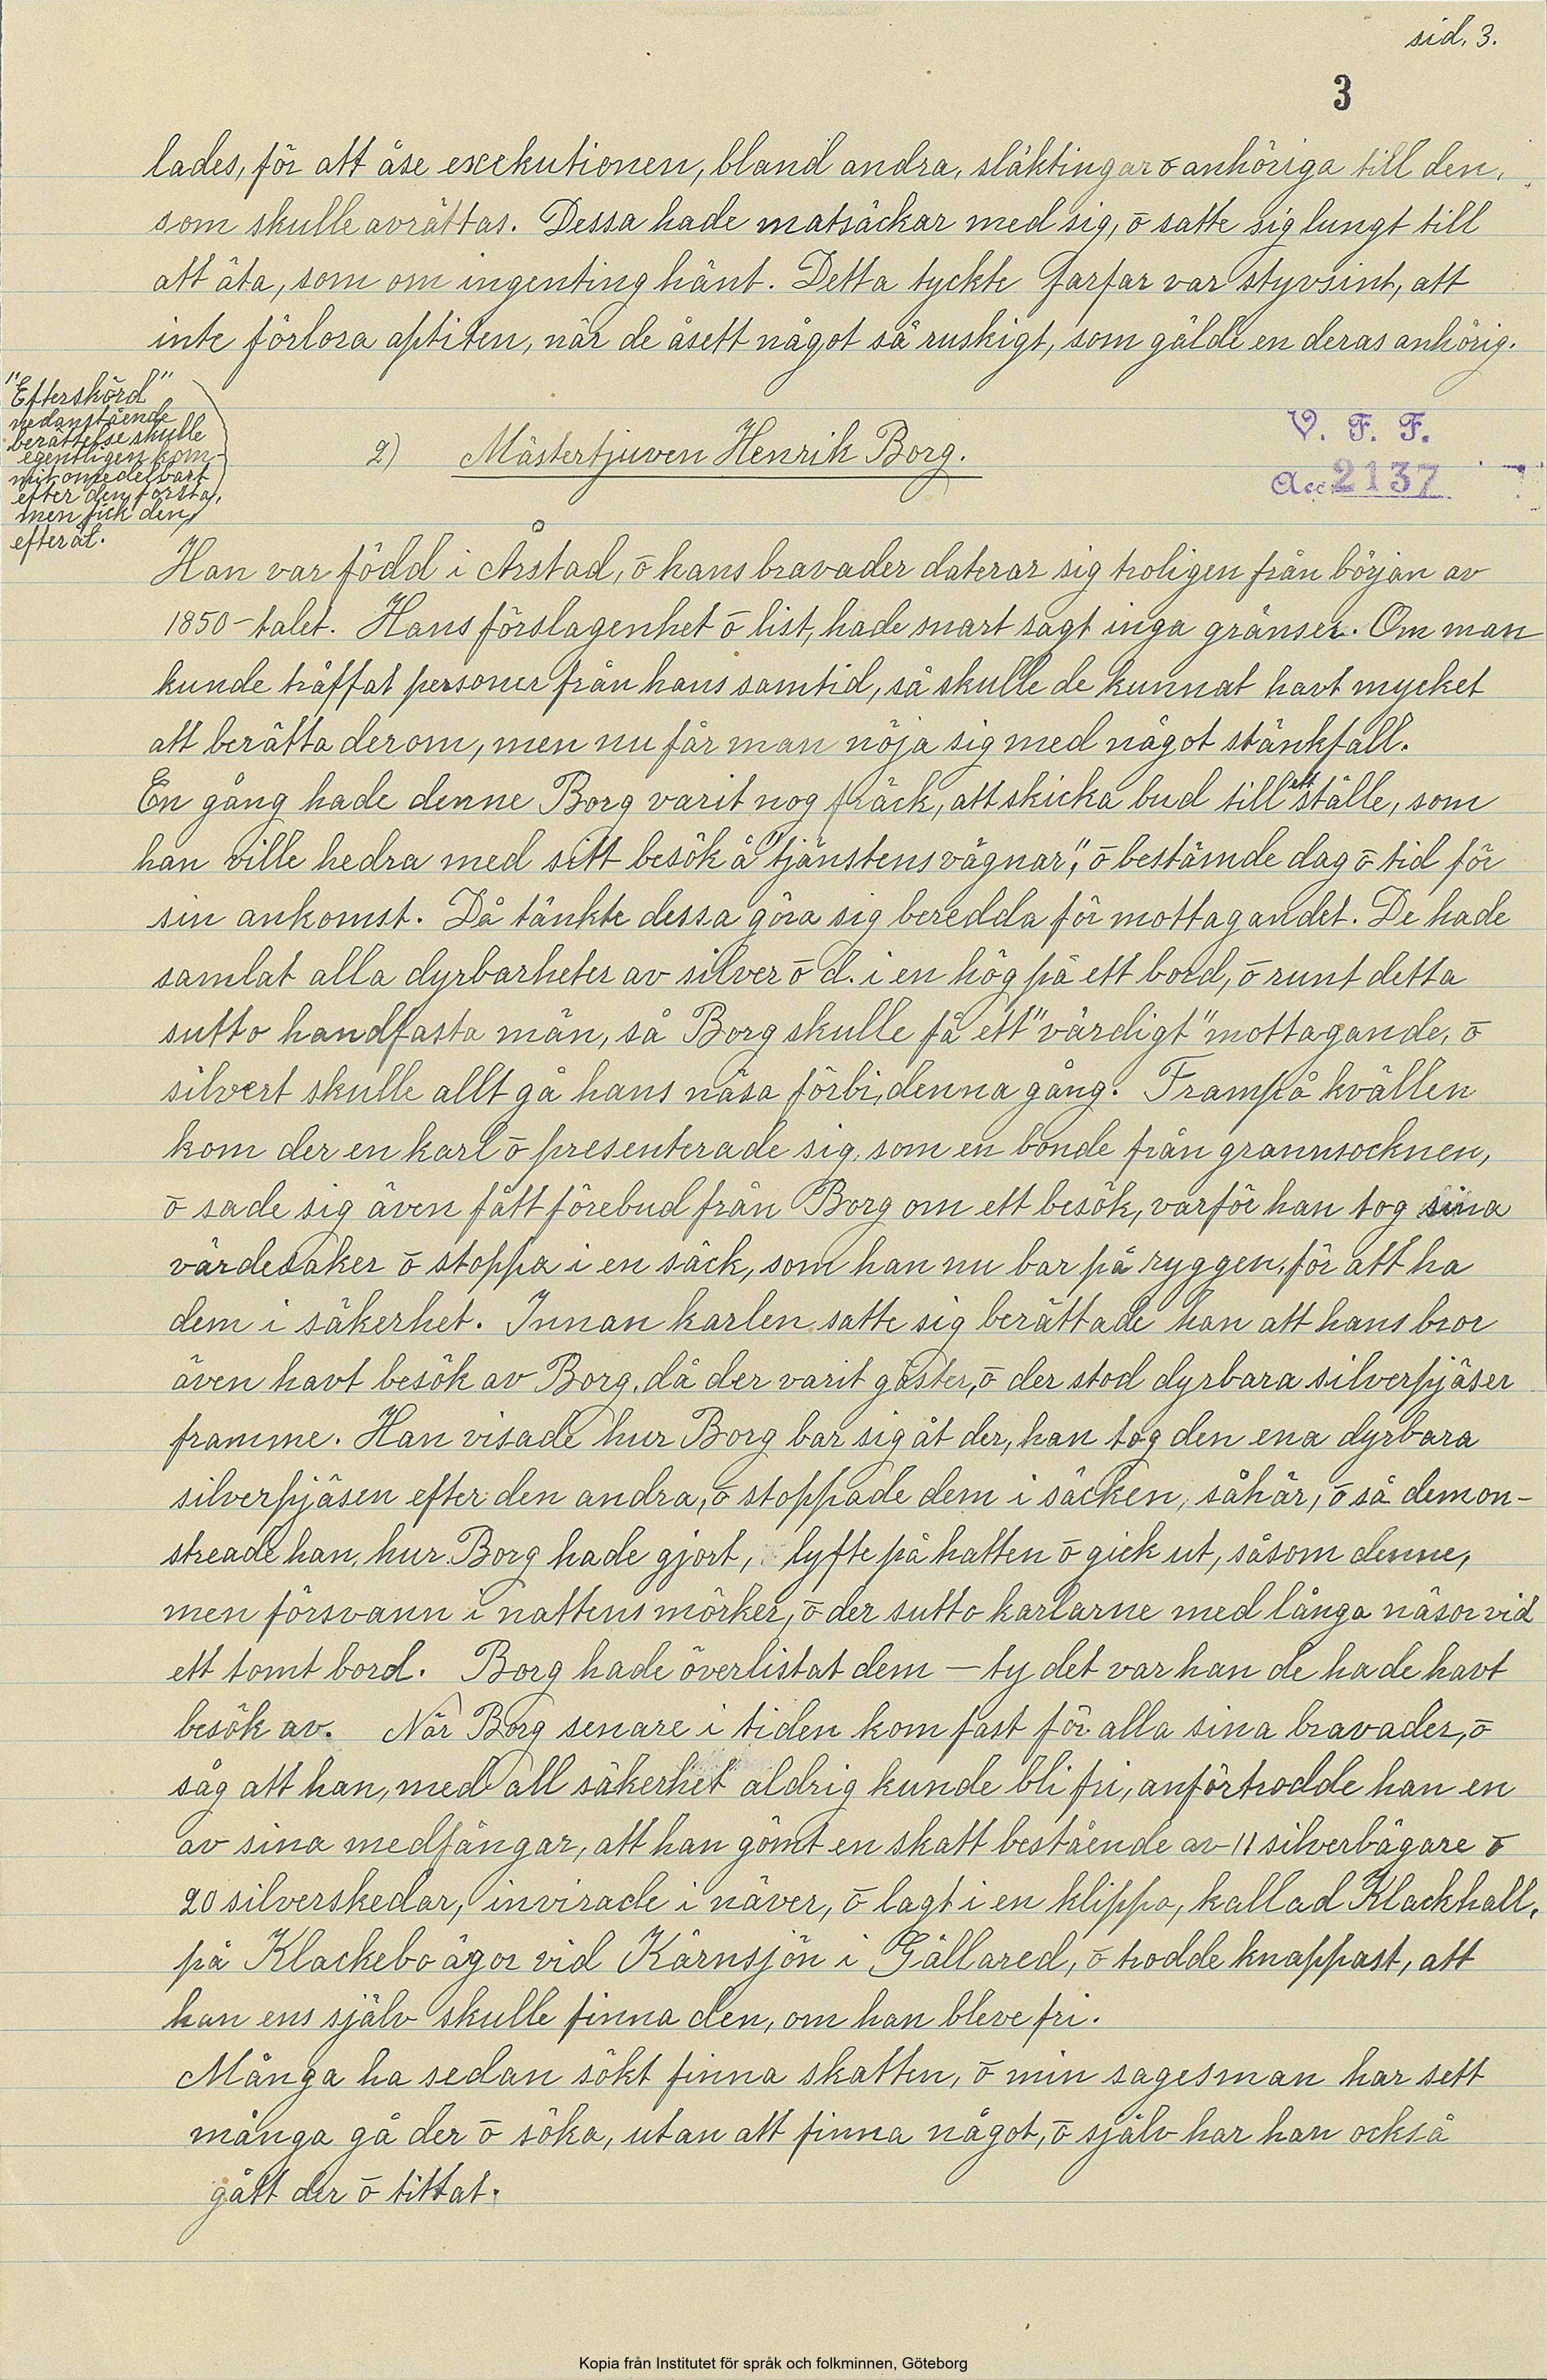 sid. 3.
3
lades, för att åse exekutionen, bland andra, släktingar ō anhöriga till den,
som skulle avrättas. Dessa hade matsäckar med sig, ō satte sig lungt till
att äta, som om ingenting hänt. Detta tyckte farfar var styvsint, att
inte förlora aptiten, när de åsett något så ruskigt, som gälde en deras anhörig.
"Efterskörd"
nedanstående
berättelse skulle
egentligen kom-
mit omedelbart
efter den första,
men fick den
efteråt.
2) Mästertjuven Henrik Borg.
V. F. F.
Acc. 2137
Han var född i Årstad, ō hans bravader daterar sig troligen från början av
1850-talet. Hans förslagenhet ō list, hade snart sagt inga gränser. Om man
kunde träffat personer från hans samtid, så skulle de kunnat havt mycket
att berätta derom, men nu får man nöja sig med något stänkfall.
En gång hade denne Borg varit nog fräck, att skicka bud till ett ställe, som
han ville hedra med sitt besök å "tjänstens vägnar", ō bestämde dag ō tid för
sin ankomst. Då tänkte dessa göra sig beredda för mottagandet. De hade
samlat alla dyrbarheter av silver ō d. i en hög på ett bord, ō runt detta
sutto handfasta män, så Borg skulle få ett "värdigt" mottagande, ō
silvert skulle allt gå hans näsa förbi, denna gång. Frampå kvällen
kom der en karl ō presenterade sig, som en bonde från grannsocknen,
ō sade sig även fått förebud från Borg om ett besök, varför han tog sina
värdesaker ō stoppa i en säck, som han nu bar på ryggen, för att ha
dem i säkerhet. Innan karlen satte sig berättade han att hans bror
även havt besök av Borg, då der varit gäster, ō der stod dyrbara silverpjäser
framme. Han visade hur Borg bar sig åt der, han tog den ena dyrbara
silverpjäsen efter den andra, ō stoppade dem i säcken, såhär, ō så demon-
streade han, hur Borg hade gjort, lyfte på hatten ō gick ut, såsom denne,
men försvann i nattens mörker, ō der sutto karlarne med långa näsor vid
ett tomt bord. Borg hade överlistat dem — ty det var han de hade havt
besök av. När Borg senare i tiden kom fast för alla sina bravader, ō
såg att han, med all säkerhet aldrig kunde bli fri, anförtrodde han en
av sina medfångar, att han gömt en skatt bestående av 11 silverbägare ō
20 silverskedar, invirade i näver, ō lagt i en klippa, kallad Klackhall,
på Klackebo ägor vid Kärnsjön i Gällared, ō trodde knappast, att
han ens själv skulle finna den, om han bleve fri.
Många ha sedan sökt finna skatten, ō min sagesman har sett
många gå der ō söka, utan att finna något, ō själv har han också
gått der ō tittat.
Kopia från Institutet för språk och folkminnen, Göteborg